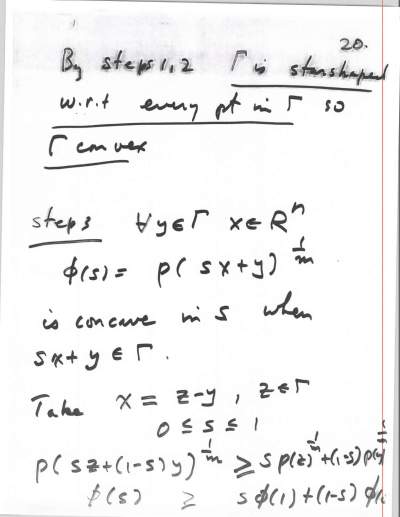 20.
By steps 1,2 Γ is starshaped
w.r.t every pt in Γ so
Γ convex
step 3 ∀y∈Γ x∈Rⁿ
φ(s) = p(sx+y)^{1/m}
is concave in s when
sx+y ∈ Γ.
Take x = z-y, z∈Γ
0 ≤ s ≤ 1
p(sz+(1-s)y)^{1/m} ≥ s p(z)^{1/m} + (1-s) p(y)^{1/m}
φ(s) ≥ sφ(1)+(1-s)φ(